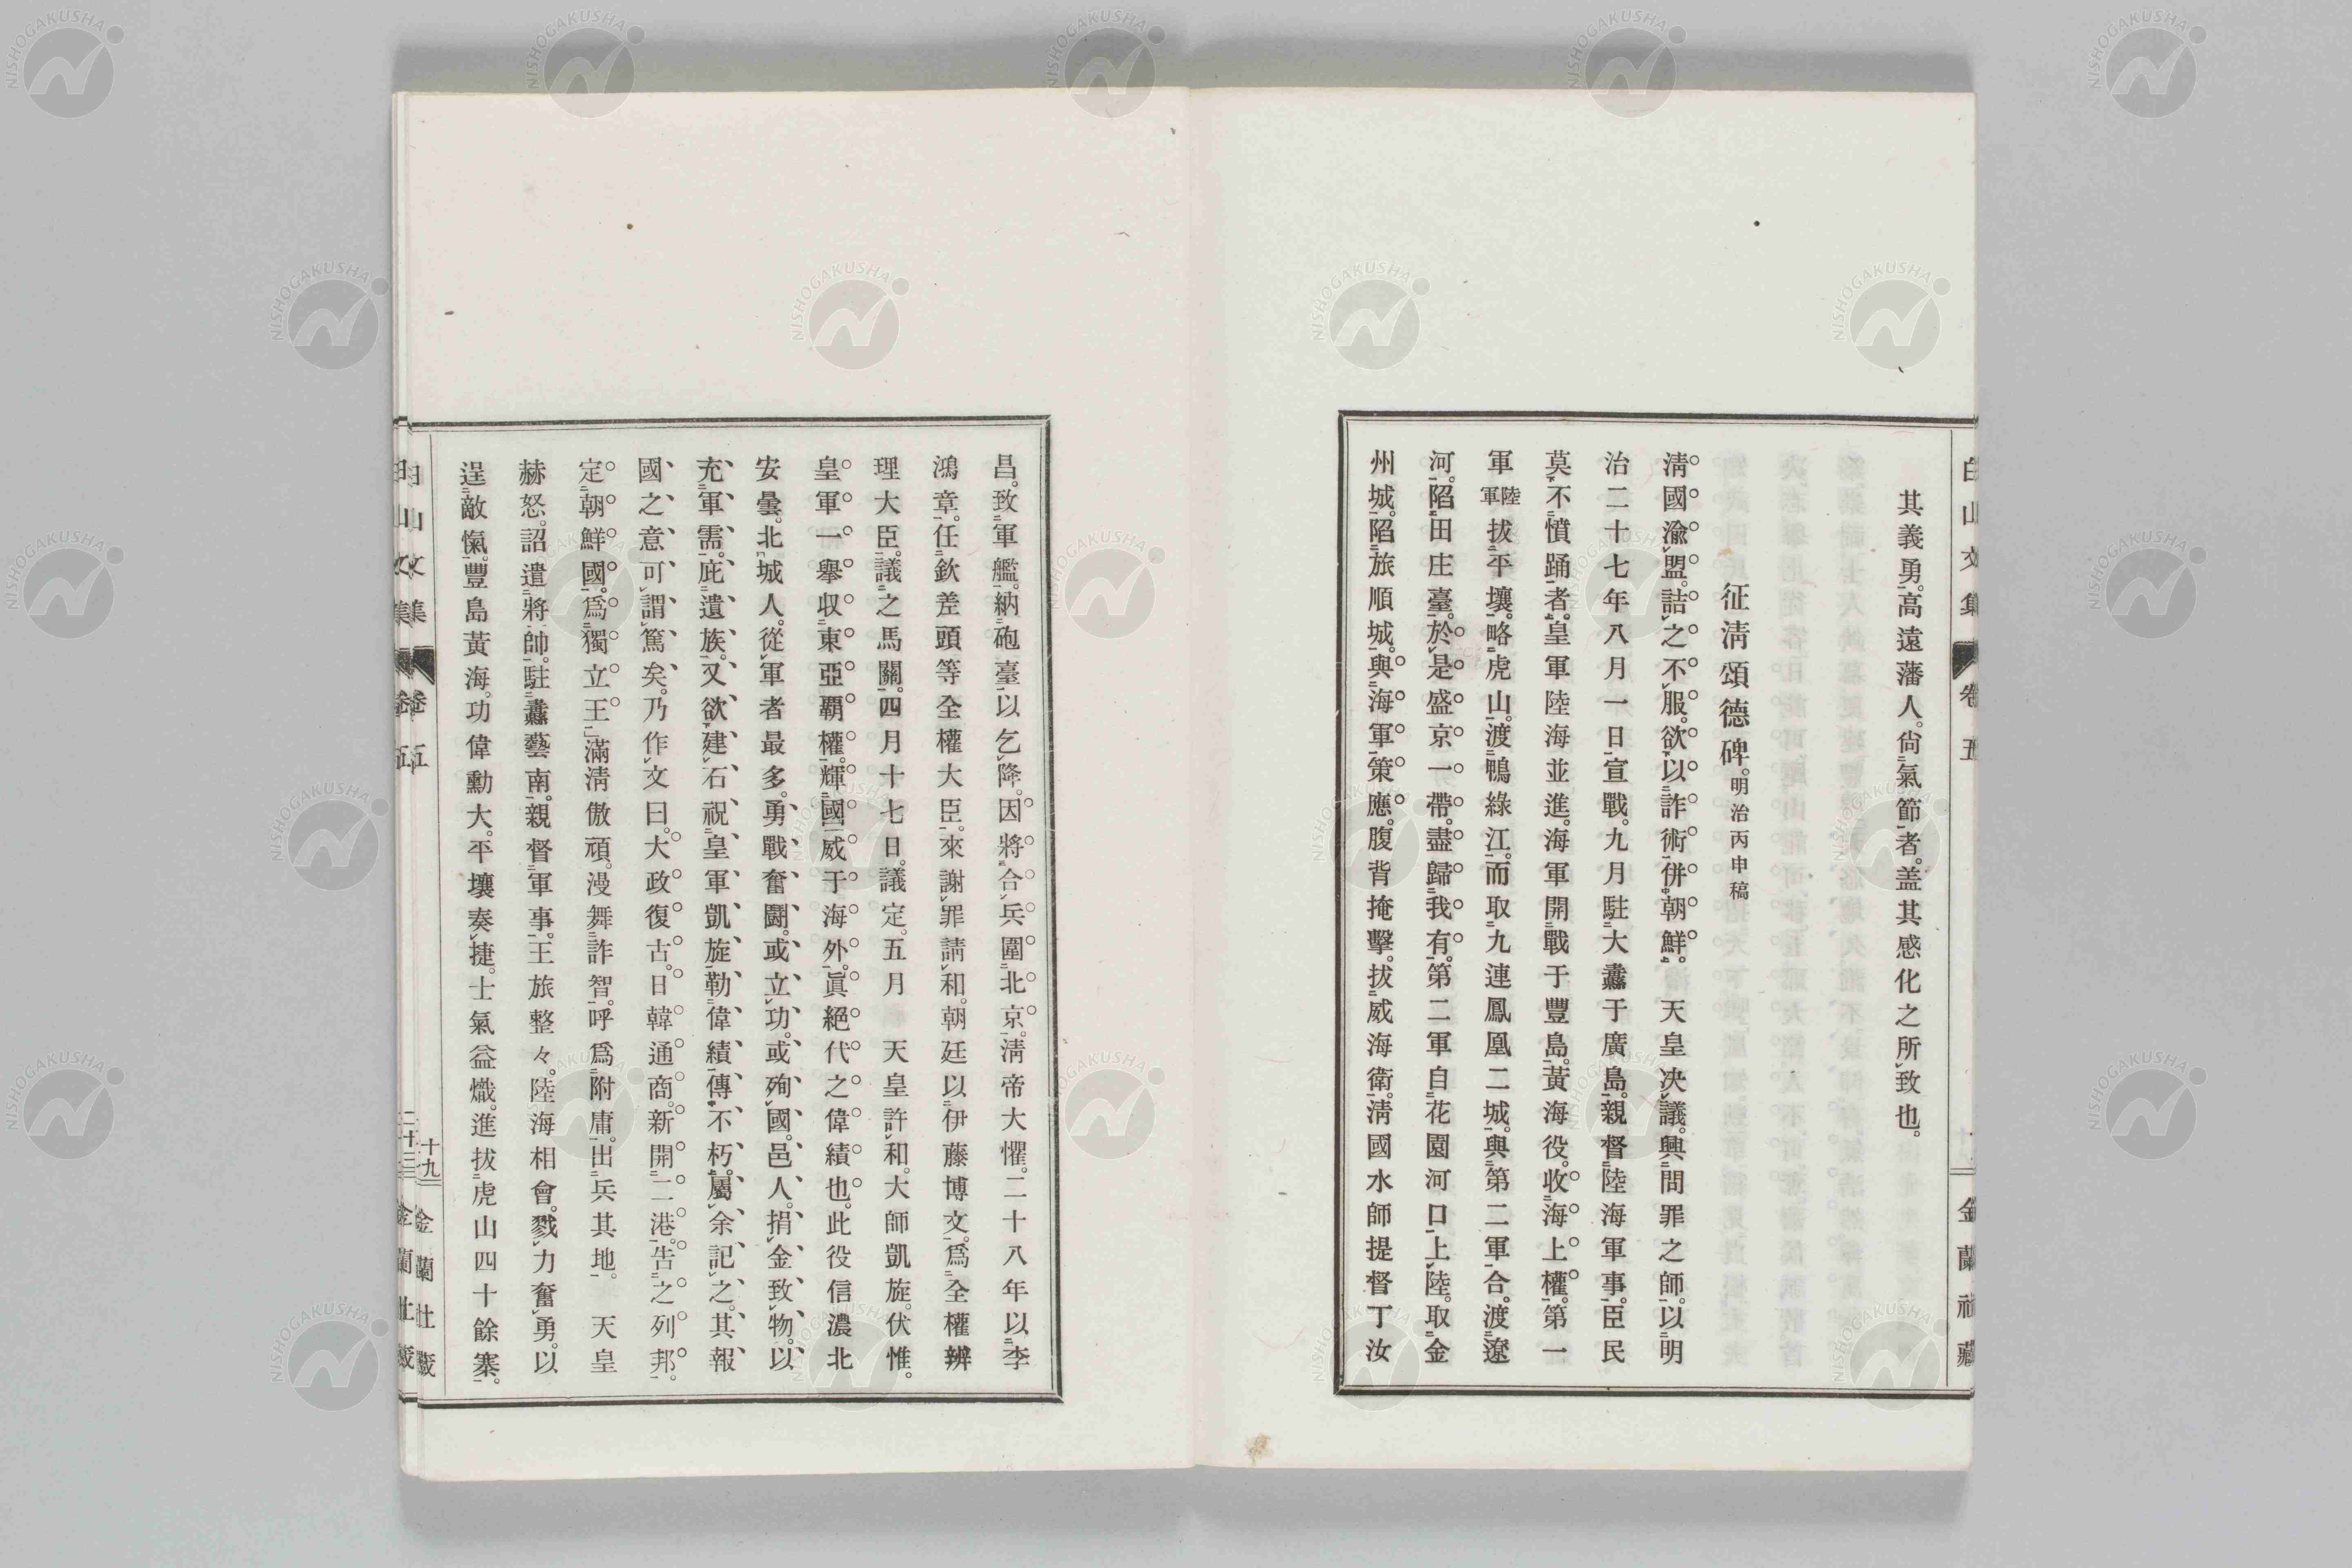 白山文集 卷五 金蘭社藏
其義勇。高遠藩人。尙氣節者。盖其感化之所致也。
征淸頌德碑。明治丙申稿
淸國渝盟。詰之不服。欲以詐術併朝鮮。 天皇决議。興問罪之師。以明
治二十七年八月一日宣戰。九月駐大纛于廣島。親督陸海軍事。臣民
莫不憤踊者。皇軍陸海並進。海軍開戰于豐島。黃海役。收海上權。第一
軍陸軍拔平壤。略虎山。渡鴨綠江。而取九連鳳凰二城。與第二軍合。渡遼
河。陷田庄臺。於是盛京一帶。盡歸我有。第二軍自花園河口上陸。取金
州城。陷旅順城。與海軍策應。腹背掩擊。拔威海衛。淸國水師提督丁汝
昌。致軍艦。納砲臺以乞降。因將合兵圍北京。淸帝大懼。二十八年以李
鴻章。任欽差頭等全權大臣。來謝罪請和。朝廷以伊藤博文。爲全權辨
理大臣。議之馬關。四月十七日。議定。五月 天皇許和。大師凱旋。伏惟。
皇軍一舉收東亞覇權。輝國威于海外。眞絕代之偉績也。此役信濃北
安曇。北城人。從軍者最多。勇戰奮鬪。或立功。或殉國。邑人。捐金致物。以
充軍需。庇遺族。又欲建石祝皇軍凱旋。勒偉績傳不朽。屬余記之。其報
國之意可謂篤矣。乃作文曰。大政復古。日韓通商。新開二港。告之列邦。
定朝鮮國。爲獨立王。滿淸傲頑。漫舞詐智。呼爲附庸。出兵其地。 天皇
赫怒。詔遣將帥。駐纛藝南。親督軍事。王旅整々。陸海相會。戮力奮勇。以
逞敵愾。豐島黃海。功偉勳大。平壤奏捷。士氣益熾。進拔虎山四十餘寨。
白山文集 卷五 十九 金蘭社藏
白山文集 卷五 二十三 金蘭社藏